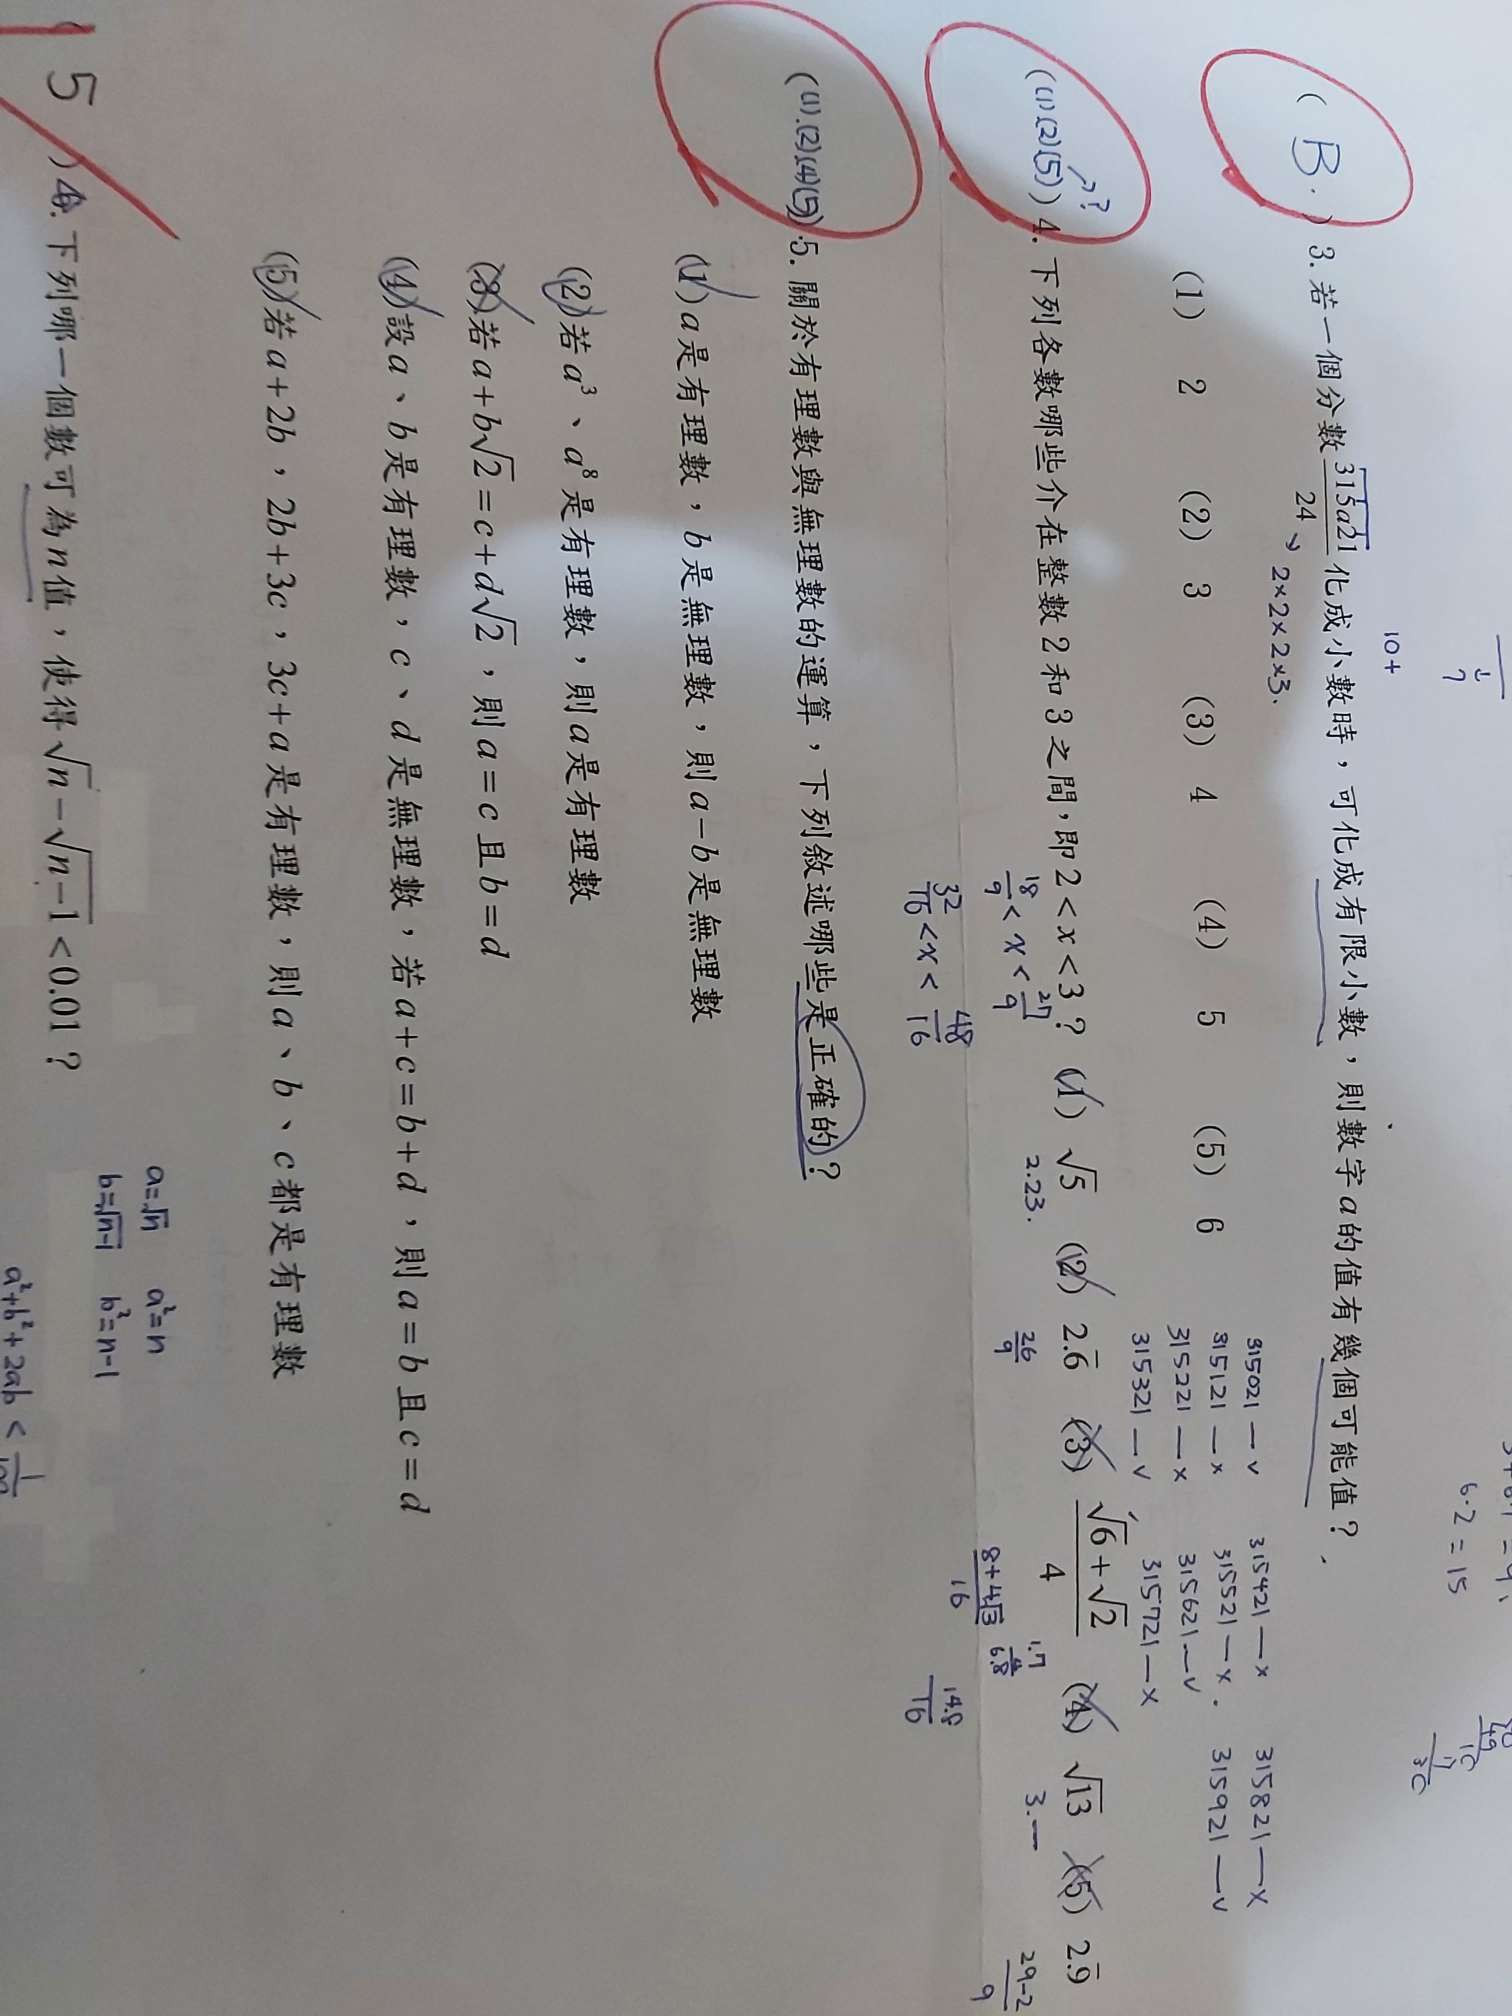 10+
( B . ) 3. 若一個分數 315a21/24 化成小數時，可化成有限小數，則數字a的值有幾個可能值？
24 → 2×2×2×3.
(1) 2 (2) 3 (3) 4 (4) 5 (5) 6
315021 — v 315421 — x 315821 — x
315121 — x 315521 — x . 315921 — v
315221 — x 315621 — v
315321 — v 315721 — x
→??
((1)(2)(5)) 4. 下列各數哪些介在整數2和3之間，即2<x<3？ (1) √5 (2) 2.6̅ (3) (√6+√2)/4 (4) √13 (5) 2.9̅
18/9 < x < 27/9 2.23. 26/9 (8+4√3)/16 1.7 6.8 3.— (29-2)/9
32/16 < x < 48/16 14.8/16
((1).(2)(4)(5)) 5. 關於有理數與無理數的運算，下列敘述哪些是正確的？
(1) a是有理數，b是無理數，則a－b是無理數
(2) 若a³、a⁸是有理數，則a是有理數
(3) 若a+b√2=c+d√2，則a=c且b=d
(4) 設a、b是有理數，c、d是無理數，若a+c=b+d，則a=b且c=d
(5) 若a+2b，2b+3c，3c+a是有理數，則a、b、c都是有理數
a=√n a²=n
b=√n-1 b²=n-1
5 ) 6. 下列哪一個數可為n值，使得√n－√n－1<0.01？
a²+b²+2ab < 1/100